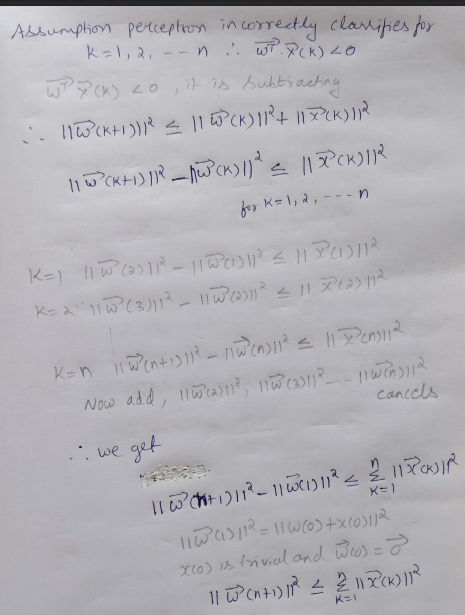 Assumption perceptron incorrectly classifies for
k=1, 2, --- n ∴ w⃗ᵀ. x⃗(k) <0
w⃗ᵀ x⃗(k) <0 , it is subtracting
∴ ||w⃗(k+1)||² ≤ ||w⃗(k)||² + ||x⃗(k)||²
||w⃗(k+1)||² - ||w⃗(k)||² ≤ ||x⃗(k)||²
for k=1, 2, ---- n
k=1 ||w⃗(2)||² - ||w⃗(1)||² ≤ ||x⃗(1)||²
k=2 ||w⃗(3)||² - ||w⃗(2)||² ≤ ||x⃗(2)||²
k=n ||w⃗(n+1)||² - ||w⃗(n)||² ≤ ||x⃗(n)||²
Now add, ||w⃗(2)||², ||w⃗(3)||² --- ||w⃗(n)||²
cancels
∴ we get
||w⃗(n+1)||² - ||w⃗(1)||² ≤ Σₖ₌₁ⁿ ||x⃗(k)||²
||w⃗(1)||² = ||w(0)+x(0)||²
x(0) is trivial and w⃗(0) = 0⃗
||w⃗(n+1)||² ≤ Σₖ₌₁ⁿ ||x⃗(k)||²